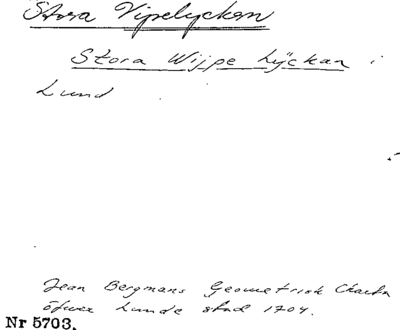 Stora Vipelyckan
Stora Wijpe Lÿckan i
Lund
Jean Bergmans Geometrisk Charta
öfwer Lunds stad 1704.
Nr 5703.